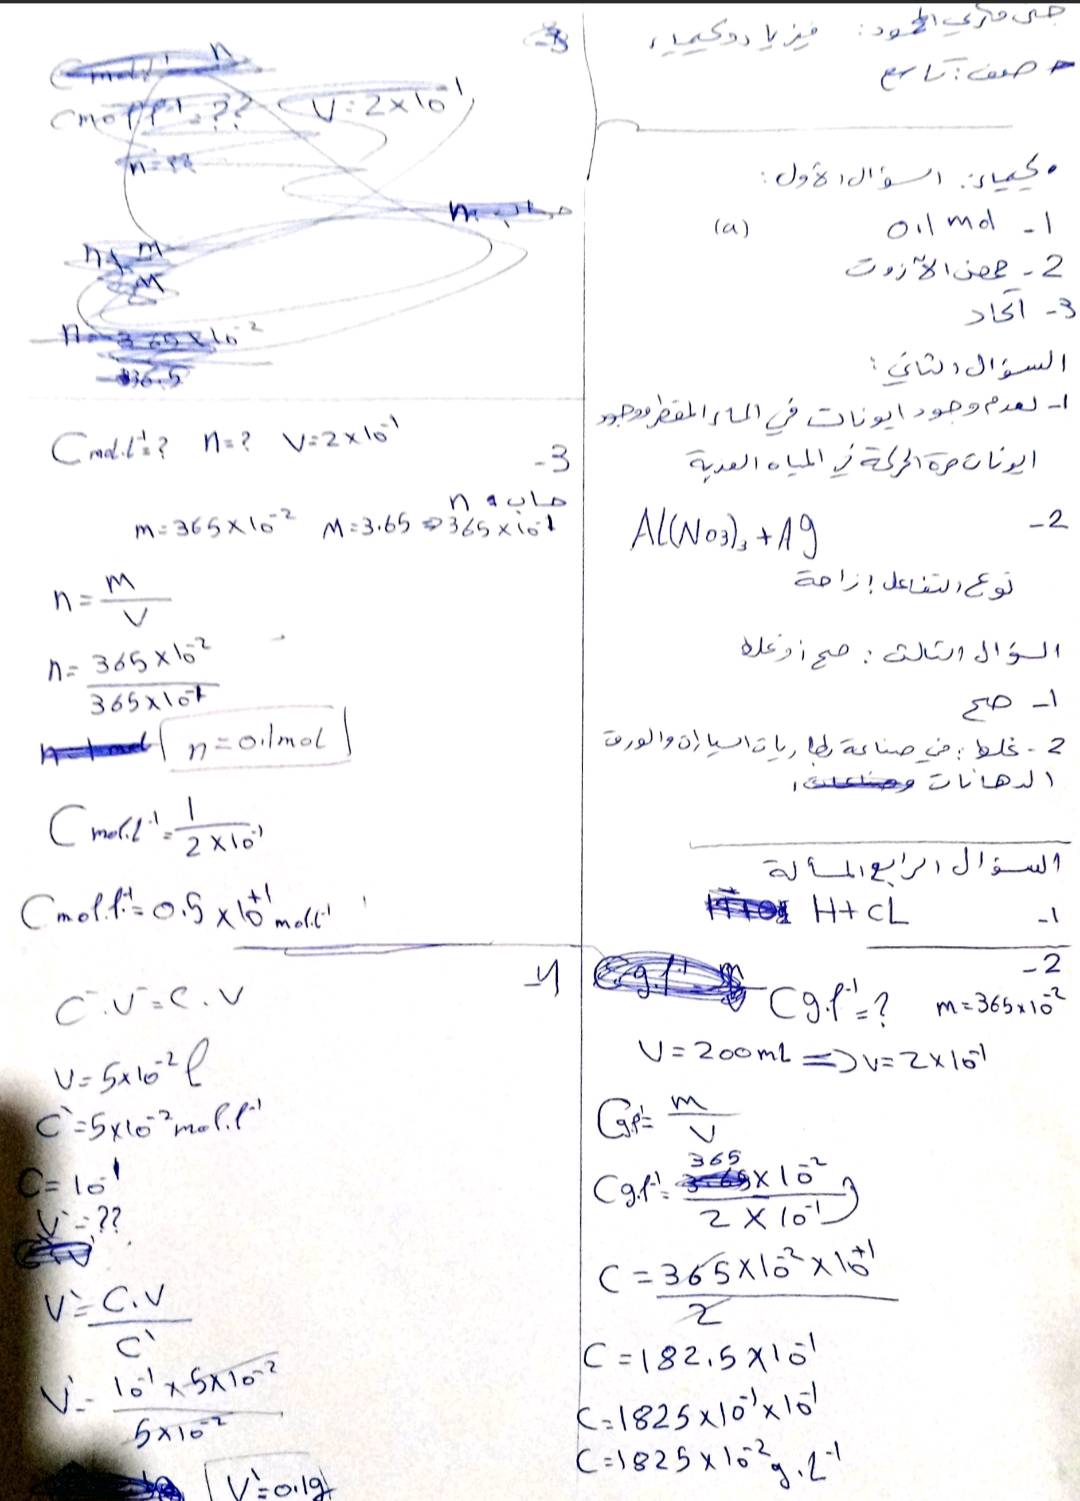 فيزياء وكيمياء
صف: تاسع
• كيمياء: السؤال الأول:
1- 0,1 mol (a)
2- حمض الآزوت
3- اتحاد
السؤال الثاني:
1- لعدم وجود ايونات في الماء المقطر ووجود
ايونات حرة الحركة في المياه المعدنية
2- Al(NO3)3 + Ag
نوع التفاعل: إزاحة
السؤال الثالث: صح أو غلط
1- صح
2- غلط: في صناعة بطاريات السيارات والورق
الدهانات
السؤال الرابع المسألة
1- H + CL
2-
Cg.l-1=? m=365x10-2
V=200mL => v=2x10-1
Cg.l-1= m/V
Cg.l-1= 365x10-2 / 2x10-1
C = 365x10-2x10+1 / 2
C=182,5x10-1
C=1825x10-1x10-1
C=1825x10-2 g.L-1
3-
Cmol.l-1=? n=? V=2x10-1
حساب n
m=365x10-2 M=3.65 => 365x10-1
n= m/V
n= 365x10-2 / 365x10-1
n=0,1mol
Cmol.l-1= 1 / 2x10-1
Cmol.l-1=0.5x10+1 mol.l-1
4-
C`.V`=C.V
V=5x10-2 l
C`=5x10-2 mol.l-1
C=10-1
V`=??
V`= C.V / C`
V`= 10-1x5x10-2 / 5x10-2
V`=0,1g